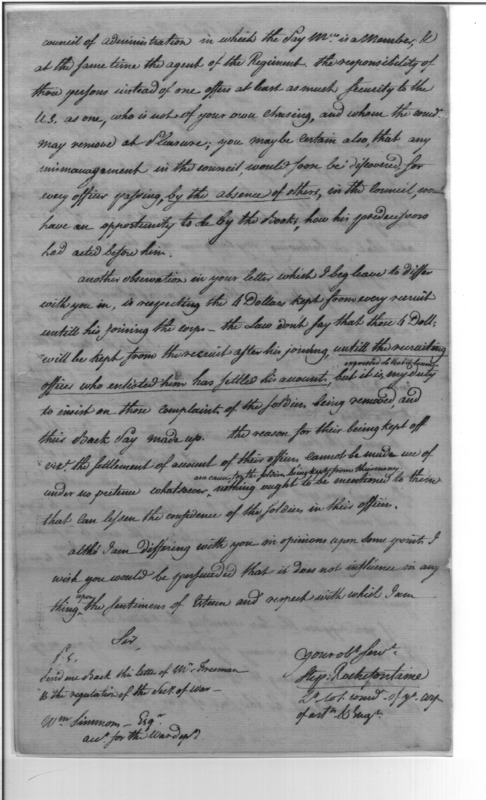 council of administration in which the Pay Mr. is a Member, &
at the same time the agent of the Regiment the responsibility of
those persons instead of one offers at least as much security to the
U.S. as one, who is not of your own chusing, and whom the comd.
may remove at Pleasure; you may be certain also, that any
mismanagement in the council would soon be discovered for
every officer passing, by the absence of others, in the Council, would
have an opportunity to see by the Books, how his predecessors
had acted before him.
another observation in your letter which I beg leave to differ
with you in, is respecting the 4 Dollars kept from every recruit
untill his joining the corps - the Law dont say that those 4 Doll:
will be kept from the recruit after his joining, untill the recruiting
officer who enlisted him has settled his account; but it is my duty
to insist on those complaints of the soldiers being removed, and
their Back Pay made up. the reason for their being kept off
the settlement of account of their officers cannot be made use of
as a cause for the soldiers being kept from their money
under no pretence whatsoever, nothing ought to be mentioned to them
that can lessen the confidence of the soldiers in their officers.
altho I am differing with you in opinions upon some points I
wish you would be persuaded that it does not influence in any
thing upon the sentimens of Esteem and respect with which I am
Sir
P.S.
Send me Back the letter of Mr. Freeman
& the regulation of the Sect. of War -
Wm Simmons - Esqr.
acct. for the War dept.
your obt. Servt.
Step. Rochefontaine
Lt Col. comdt. of ye. corps
of artts. & Engrs.